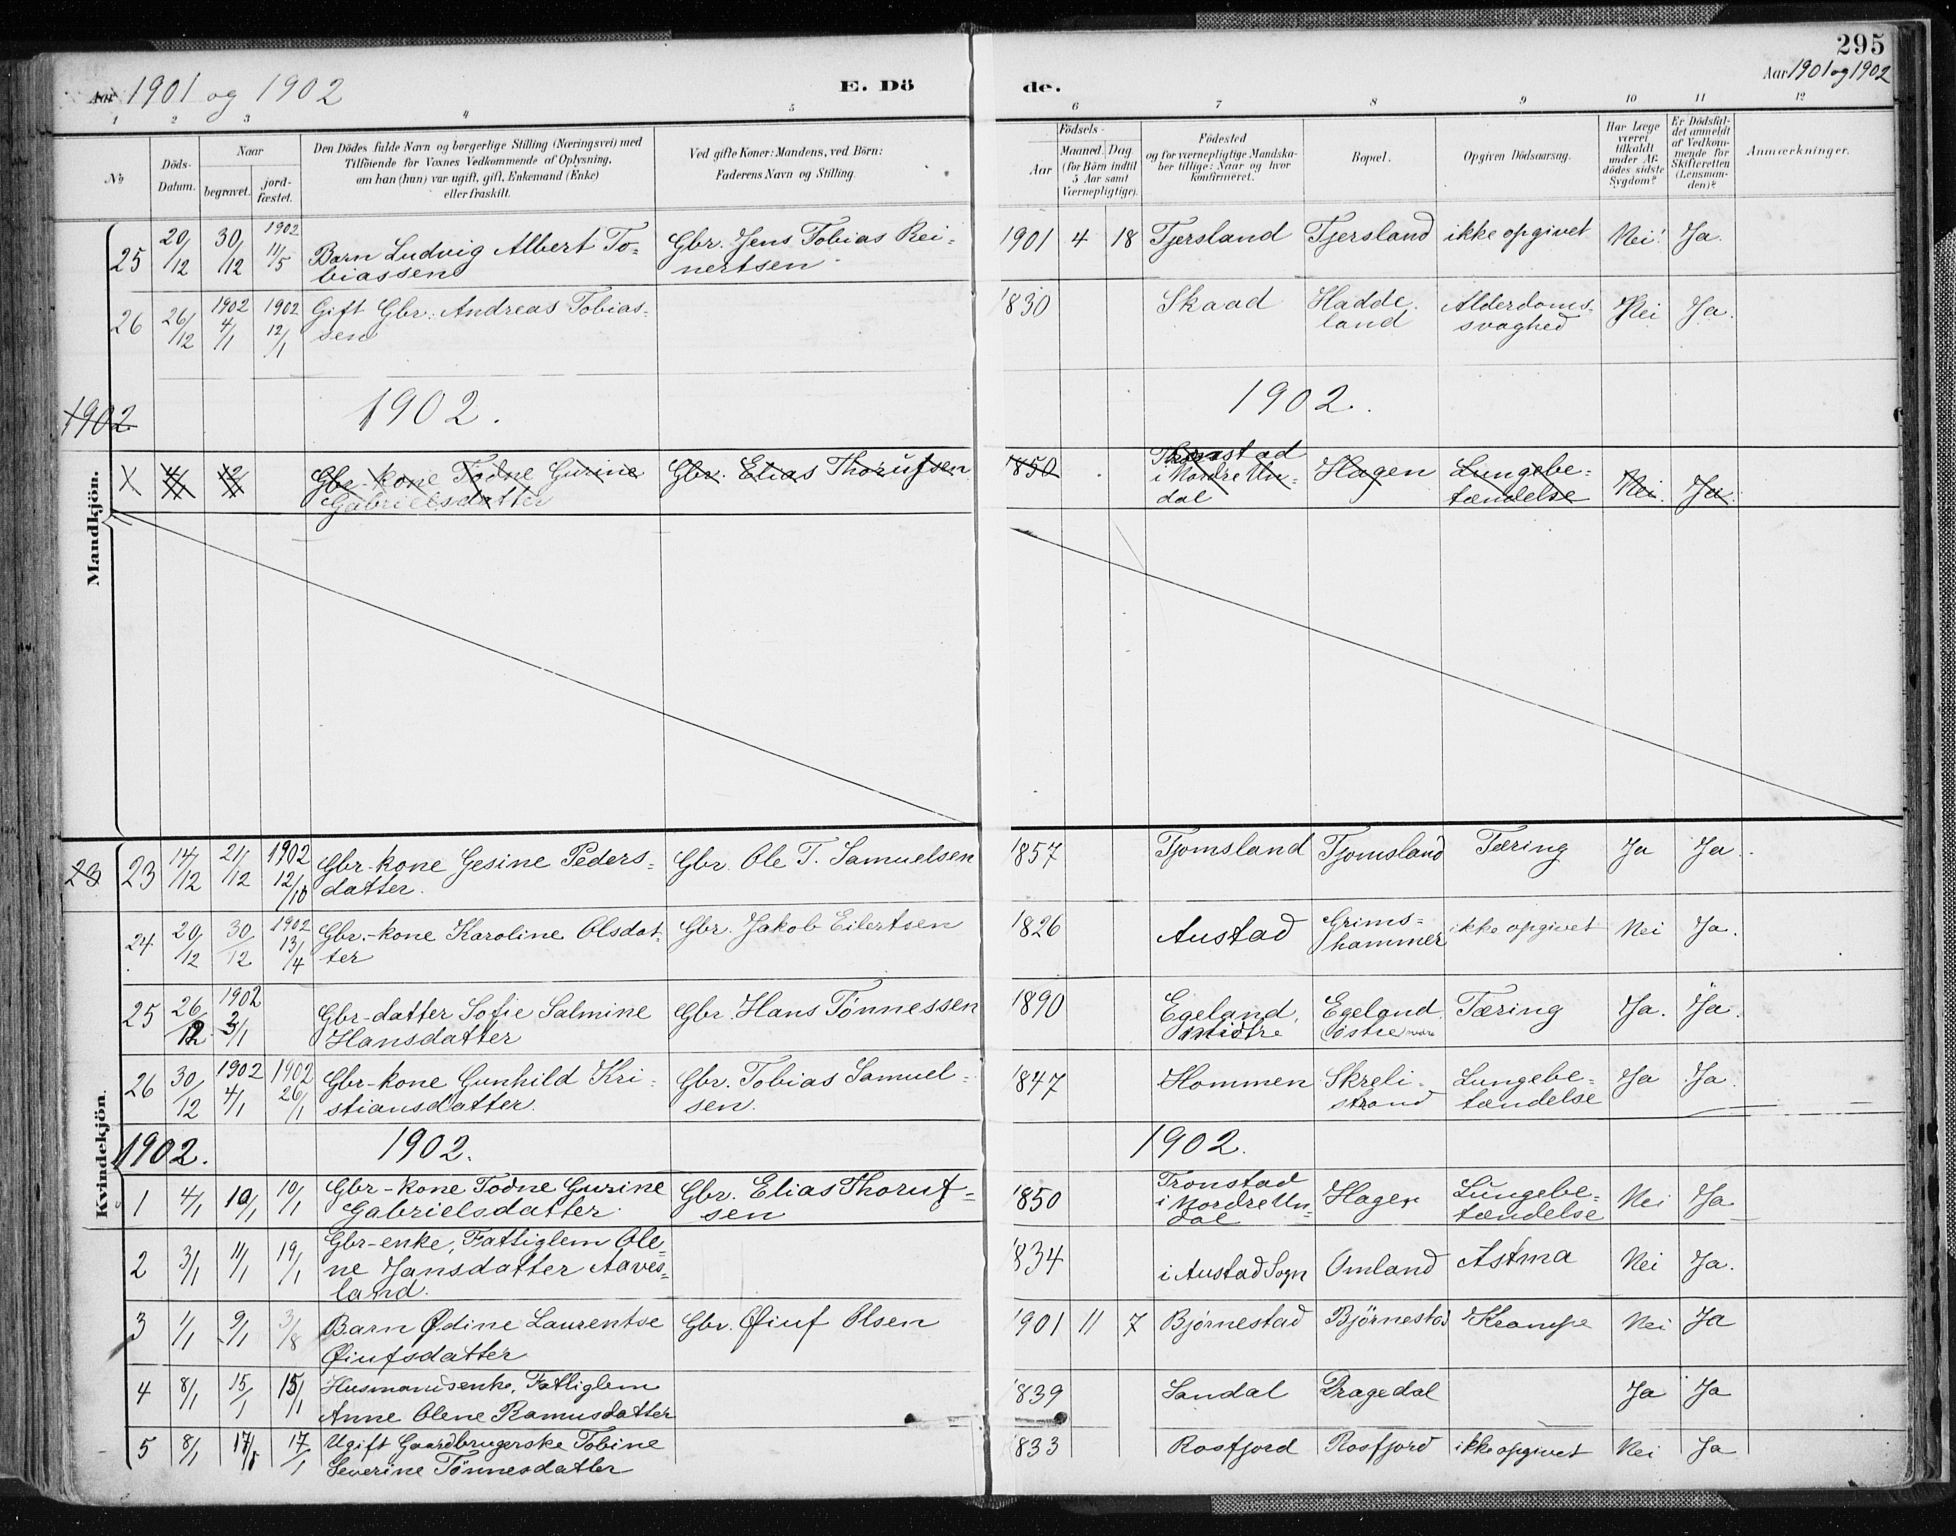 295
Aar 1901 og 1902 E. Dö de. Aar 1901 og 1902
1 2 3 4 5 6 7 8 9 10 11 12
No
Döds-
Datum.
Naar
begravet.
jord-
fæstet.
Den Dödes fulde Navn og borgerlige Stilling (Næringsvei) med
Tilföiende for Voxnes Vedkommende af Oplysning,
om han (hun) var ugift, gift, Enkemand (Enke)
eller fraskilt.
Ved gifte Koner: Mandens, ved Börn:
Faderens Navn og Stilling.
Födsels-
Aar
Maaned. Dag
(for Börn indtil
5 Aar samt
Værnepligtige).
Födested
og for værnepligtige Mandska-
ber tillige: Naar og hvor
konfirmeret.
Bopæl.
Opgiven Dödsaarsag.
Har Læge
været
tilkaldt
under Af-
dödes sidste
Sygdom?
Er Dödsfal-
det anmeldt
af Vedkom-
mende for
Skifteretten
(Lensman-
den)?
Anmærkninger.
Mandkjön.
25 20/12 30/12 1902 11/5 Barn Ludvig Albert To-
biassen
Gbr. Jens Tobias Rei-
nertsen
1901 4 18 Tjersland Tjersland ikke opgivet Nei Ja.
26 26/12 1902 4/1 1902 12/1 Gift Gbr. Andreas Tobias-
sen
1830 Skaad Hadde-
land
Alderdoms-
svaghed
Nei Ja.
1902 1902. 1902.
Gbr-kone Todne Gurine
Gabrielsdatter
Gbr. Elias Thorufsen
1850 Tronstad
i Nordre Un-
dal
Hagen Lungebe-
tændelse
Nei. Ja.
Kvindekjön.
23 23 14/12 21/12 1902 12/10 Gbr-kone Gesine Peders-
datter.
Gbr. Ole T. Samuelsen
1857 Tjomsland Tjomsland Tæring Ja Ja.
24 20/12 30/12 1902 13/4 Gbr.-kone Karoline Olsdat-
ter
Gbr. Jakob Eilertsen
1826 Austad Grims-
hammer
ikke opgivet Nei Ja.
25 26/12 1902 3/1 Gbr-datter Sofie Salmine
Hansdatter
Gbr. Hans Tönnessen
1890 Egeland,
Egeland
östre
Tæring Ja. Ja.
26 30/12 1902 4/1 1902 26/1 Gbr-kone Gunhild Kri-
stiansdatter.
Gbr. Tobias Samuel-
sen.
1847 Hommen Skreli-
strand
Lungebe-
tændelse
Ja Ja.
1902. 1902. 1902.
1 4/1 10/1 10/1 Gbr-kone Todne Gurine
Gabrielsdatter.
Gbr. Elias Thoruf-
sen
1850 Tronstad
i Nordre Un-
dal
Hagen Lungebe-
tændelse
Nei Ja
2 3/1 11/1 19/1 Gbr-enke, Fattiglem Ole-
ne Jansdatter Aaves-
land.
1834 i Austad Sogn Omland Astma Nei Ja.
3 1/1 9/1 3/8 Barn Ødine Laurentse
Øiufsdatter
Gbr. Øiuf Olsen
1901 11 7 Bjørnestad Björnestad Krampe Nei Ja
4 8/1 15/1 15/1 Husmandsenke, Fattiglem
Anne Olene Ramusdatter
1839 Sandal Dragedal Ja Ja
5 8/1 17/1 17/1 Ugift Gaardbrugerske Tobine
Severine Tönnesdatter
1833 Rosfjord Rosfjord ikke opgivet Nei Ja